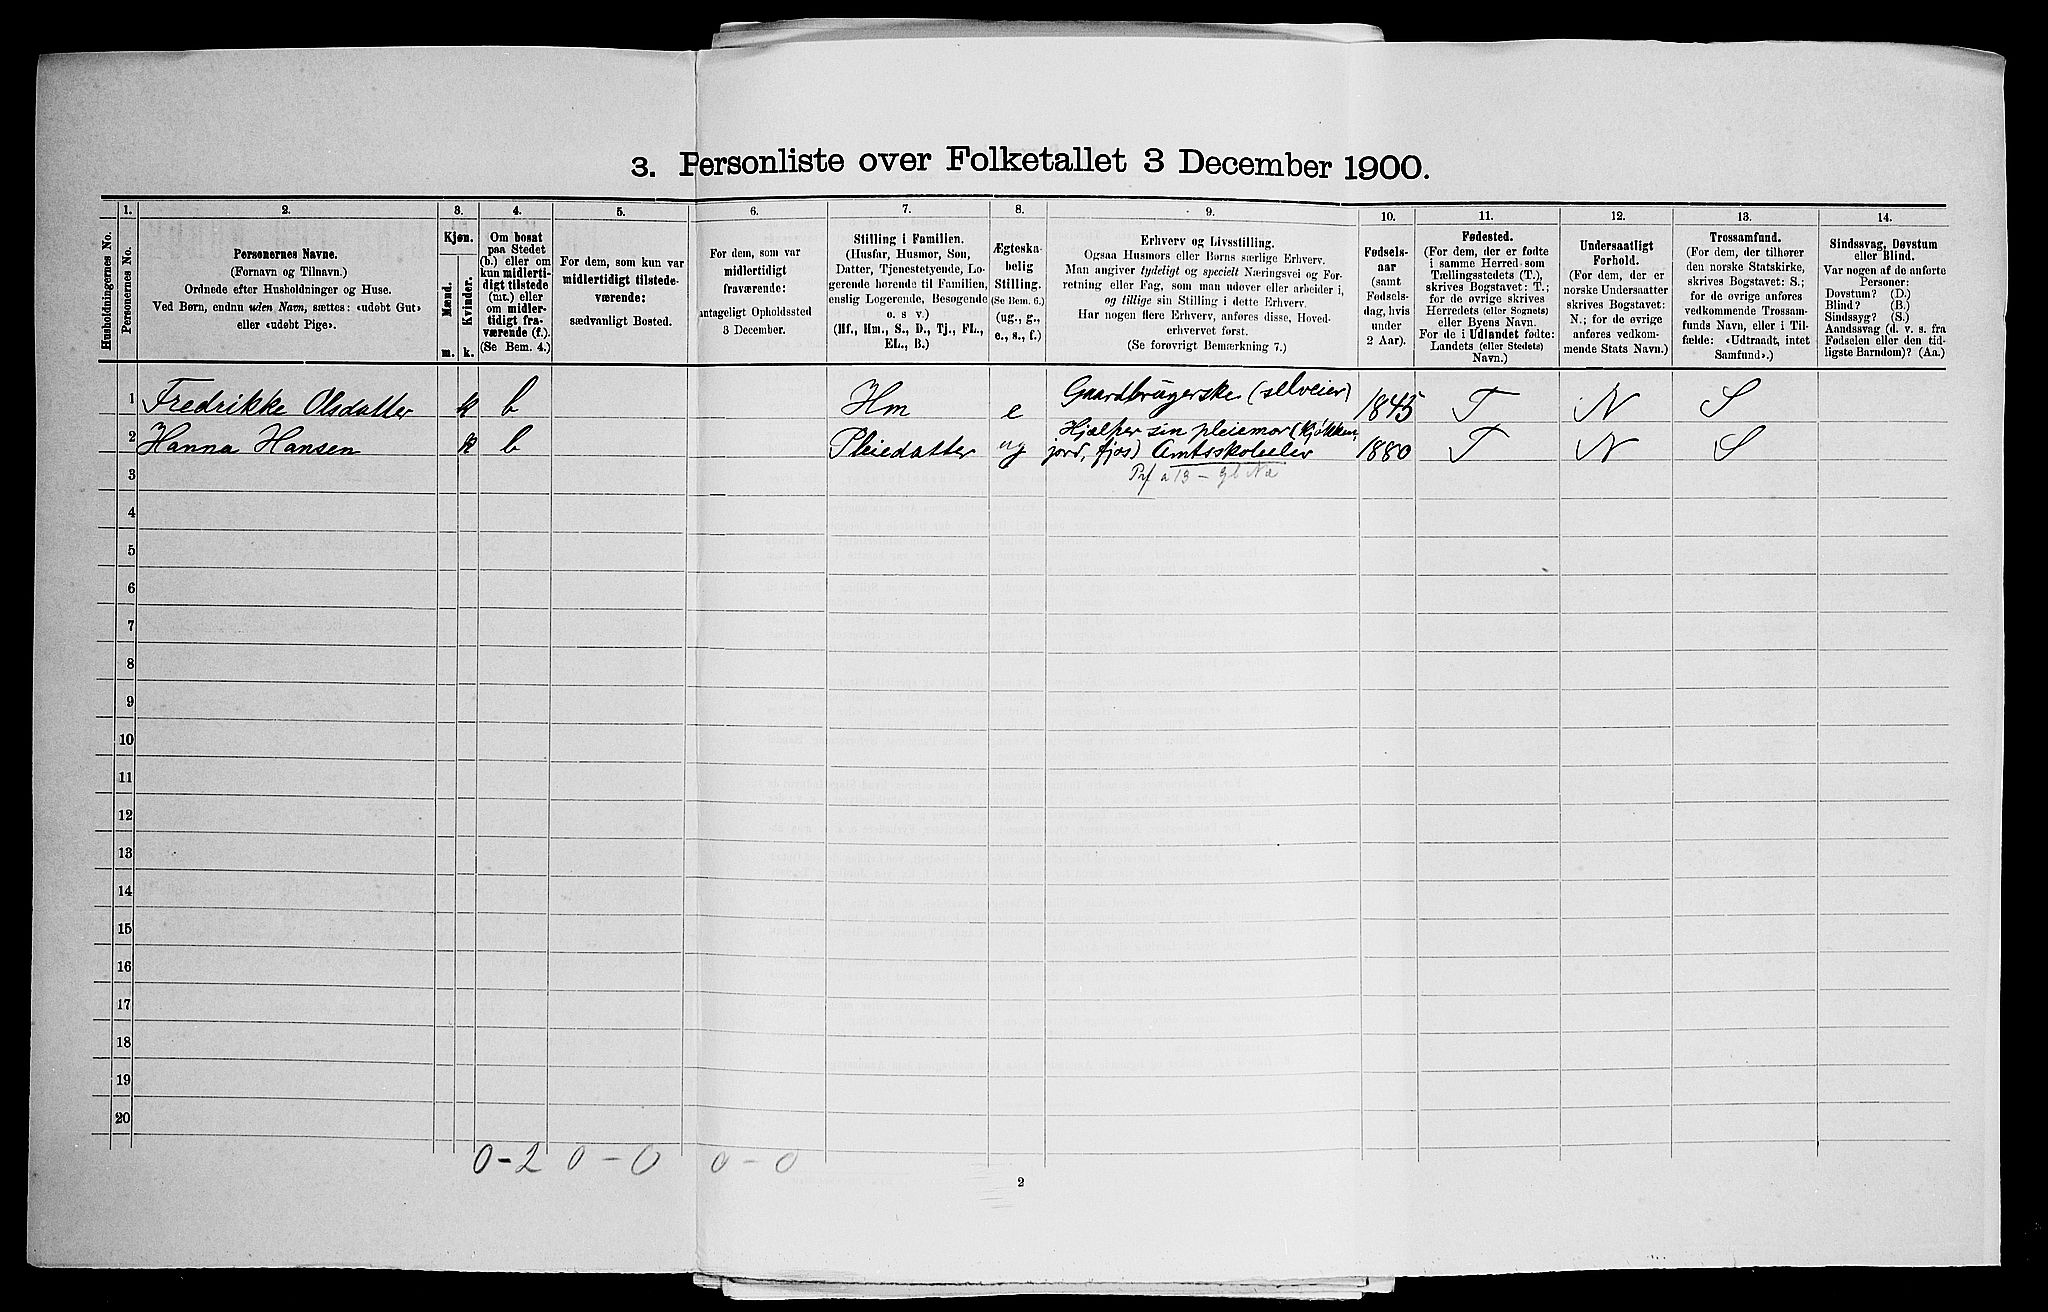 3. Personliste over Folketallet 3 December 1900.
Husholdningernes No.
1.
Personernes No.
2.
Personernes Navne.
(Fornavn og Tilnavn.)
Ordnede efter Husholdninger og Huse.
Ved Børn, endnu uden Navn, sættes: «udøbt Gut»
eller «udøbt Pige».
3.
Kjøn.
Mænd.
Kvinder.
m.
k.
4.
Om bosat
paa Stedet
(b.) eller om
kun midlerti-
digt tilstede
(mt.) eller
om midler-
tidigt fra-
værende (f.).
(Se Bem. 4.)
5.
For dem, som kun var
midlertidigt tilstede-
værende:
sædvanligt Bosted.
6.
For dem, som var
midlertidigt
fraværende:
antageligt Opholdssted
3 December.
7.
Stilling i Familien.
(Husfar, Husmor, Søn,
Datter, Tjenestetyende, Lo-
gerende hørende til Familien,
enslig Logerende, Besøgende
o. s v.)
(Hf., Hm., S., D., Tj., FL.,
EL., B.)
8.
Ægteska-
belig
Stilling.
(Se Bem. 6.)
(ug., g.,
e., s., f.)
9.
Erhverv og Livsstilling.
Ogsaa Husmors eller Børns særlige Erhverv.
Man angiver tydeligt og specielt Næringsvei og For-
retning eller Fag, som man udøver eller arbeider i,
og tillige sin Stilling i dette Erhverv.
Har nogen flere Erhverv, anføres disse, Hoved-
erhvervet først.
(Se forøvrigt Bemærkning 7.)
10.
Fødsels-
aar
(samt
Fødsels-
dag, hvis
under
2 Aar).
11.
Fødested.
(For dem, der er fødte
i samme Herred som
Tællingsstedets (T.),
skrives Bogstavet: T.;
for de øvrige skrives
Herredets (eller Sognets)
eller Byens Navn.
For de i Udlandet fødte:
Landets (eller Stedets)
Navn.)
12.
Undersaatligt
Forhold.
(For dem, der er
norske Undersaatter
skrives Bogstavet:
N.; for de øvrige
anføres vedkom-
mende Stats Navn.)
13.
Trossamfund.
(For dem, der tilhører
den norske Statskirke,
skrives Bogstavet: S.;
for de øvrige anføres
vedkommende Trossam-
funds Navn, eller i Til-
fælde: «Udtraadt, intet
Samfund».)
14.
Sindssvag, Døvstum
eller Blind.
Var nogen af de anførte
Personer:
Døvstum? (D.)
Blind? (B.)
Sindssyg? (S.)
Aandssvag (d. v. s. fra
Fødselen eller den tid-
ligste Barndom)? (Aa.)
1 Fredrikke Olsdatter k b Hm e Gaardbrugerske (selveier) 1845 T N S
2 Hanna Hansen k b Pleiedatter ug Hjælper sin pleiemor (kjøkken, 1880 T N S
jord, fjøs) Amtsskoleelev
3
4
5
6
7
8
9
10
11
12
13
14
15
16
17
18
19
20
0-2 0-0 0-0
2